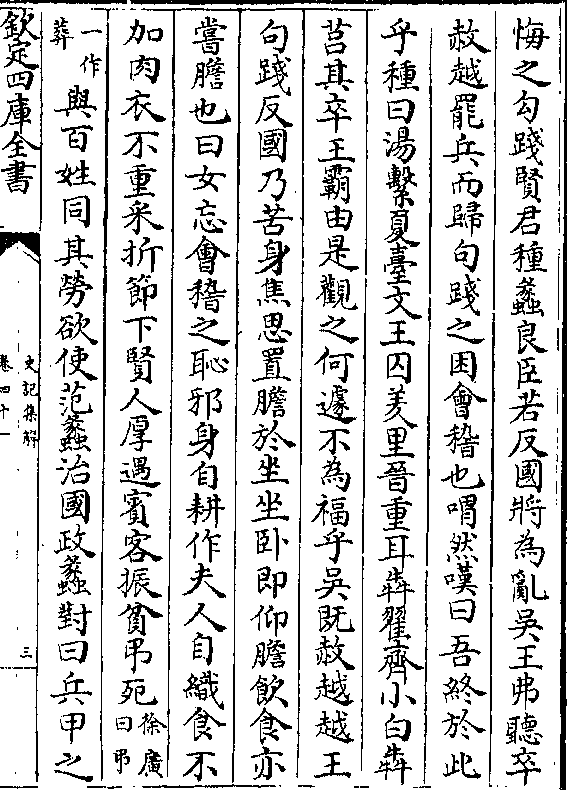 悔之勾踐賢君種蠡良臣若反國將為亂吳王弗聽卒
赦越罷兵而歸句踐之困會稽也喟然嘆曰吾終於此
乎種曰湯繫夏臺文王囚羑里晉重耳犇翟齊小白犇
莒其卒王霸由是觀之何遽不為福乎吳既赦越越王
句踐反國乃苦身焦思置膽於坐坐卧即仰膽飲食亦
嘗膽也曰女忘會稽之恥邪身自耕作夫人自織食不
加肉衣不重采折節下賢人厚遇賓客振貧弔死徐廣曰弔
一作葬與百姓同其勞欲使范蠡治國政蠡對曰兵甲之
欽定四庫全書
史記集解
卷四十一
三